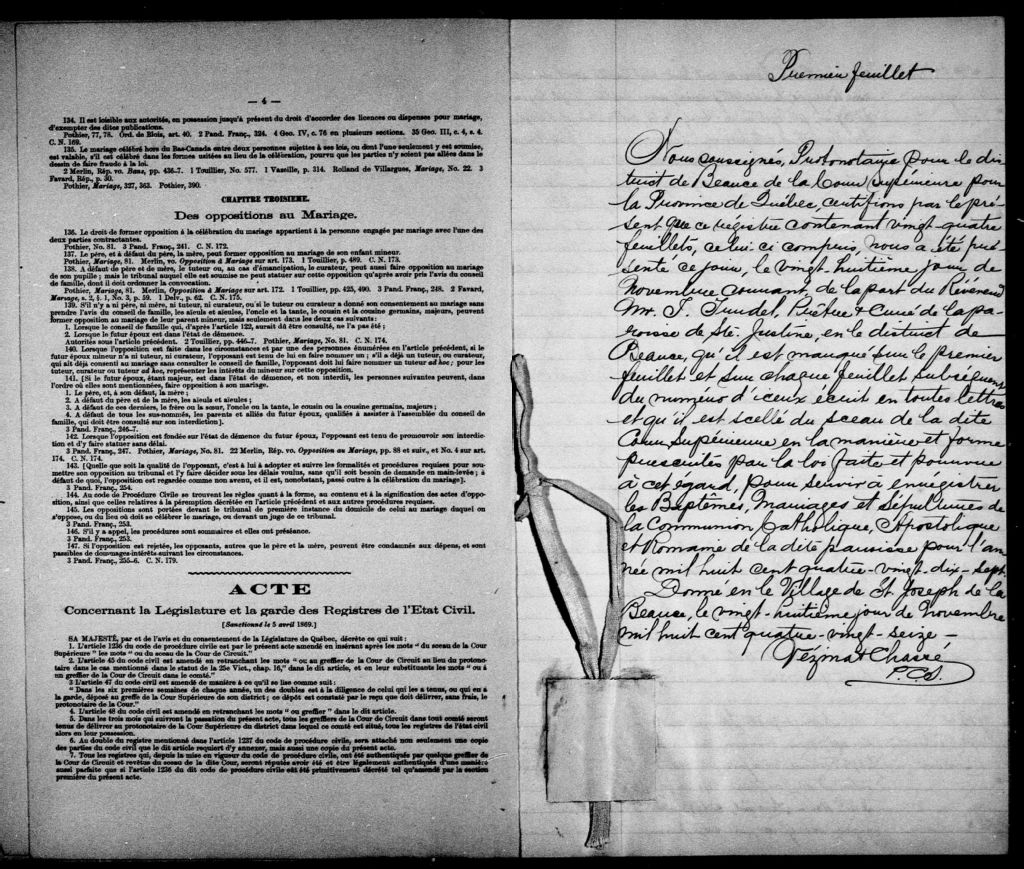 — 4 —
134. Il est loisible aux autorités, en possession jusqu'à présent du droit d'accorder des licences ou dispenses pour mariage,
d'exempter des dites publications.
Pothier, 77, 78. Ord. de Blois, art. 40. 2 Pand. Franç., 324. 4 Geo. IV, c. 76 en plusieurs sections. 35 Geo. III, c. 4, s. 4.
C. N. 169.
135. Le mariage célébré hors du Bas-Canada entre deux personnes sujettes à ses lois, ou dont l'une seulement y est soumise,
est valable, s'il est célébré dans les formes usitées au lieu de la célébration, pourvu que les parties n'y soient pas allées dans le
dessin de faire fraude à la loi.
2 Merlin, Rép. vo. Bans, pp. 436-7. 1 Touillier, No. 577. 1 Vazille, p. 314. Rolland de Villargues, Mariage, No. 22. 3
Favard, Rép., p. 30.
Pothier, Mariage, 327, 363. Pothier, 390.
CHAPITRE TROISIEME.
Des oppositions au Mariage.
136. Le droit de former opposition à la célébration du mariage appartient à la personne engagée par mariage avec l'une des
deux parties contractantes.
Pothier, No. 81. 3 Pand. Franç., 241. C. N. 172.
137. Le père, et à défaut du père, la mère, peut former opposition au mariage de son enfant mineur.
Pothier, Mariage, 81. Merlin, vo. Opposition à Mariage sur art. 173. 1 Touillier, p. 489. C. N. 173.
138. A défaut de père et de mère, le tuteur ou, au cas d'émancipation, le curateur, peut aussi faire opposition au mariage
de son pupille; mais le tribunal auquel elle est soumise ne peut statuer sur cette opposition qu'après avoir pris l'avis du conseil
de famille, dont il doit ordonner la convocation.
Pothier, Mariage, 81. Merlin, Opposition à Mariage sur art. 172. 1 Touillier, pp. 425, 490. 3 Pand. Franç., 248. 2 Favard,
Mariage, s. 2, § 1, No. 3, p. 59. 1 Delv., p. 62. C. N. 175.
139. S'il n'y a ni père, ni mère, ni tuteur, ni curateur, ou si le tuteur ou curateur a donné son consentement au mariage sans
prendre l'avis du conseil de famille, les aïeuls et aïeules, l'oncle et la tante, le cousin et la cousine germains, majeurs, peuvent
former opposition au mariage de leur parent mineur, mais seulement dans les deux cas suivants:
1. Lorsque le conseil de famille qui, d'après l'article 122, aurait dû être consulté, ne l'a pas été;
2. Lorsque le futur époux est dans l'état de démence.
Autorités sous l'article précédent. 2 Touillier, pp. 446-7. Pothier, Mariage, No. 81. C. N. 174.
140. Lorsque l'opposition est faite dans les circonstances et par une des personnes énumérées en l'article précédent, si le
futur époux mineur n'a ni tuteur, ni curateur, l'opposant est tenu de lui en faire nommer un; s'il a déjà un tuteur, ou curateur,
qui ait déjà consenti au mariage sans consulter le conseil de famille, l'opposant doit lui faire nommer un tuteur ad hoc; pour les
tuteur, curateur ou tuteur ad hoc, représenter les intérêts du mineur sur cette opposition.
141. [Si le futur époux, étant majeur, est dans l'état de démence, et non interdit, les personnes suivantes peuvent, dans
l'ordre où elles sont mentionnées, faire opposition à son mariage.
1. Le père, et, à son défaut, la mère;
2. A défaut du père et de la mère, les aïeuls et aïeules;
3. A défaut de ces derniers, le frère ou la sœur, l'oncle ou la tante, le cousin ou la cousine germains, majeurs;
4. A défaut de tous les sus-nommés, les parents et alliés du futur époux, qualifiés à assister à l'assemblée du conseil de
famille, qui doit être consulté sur son interdiction].
3 Pand. Franç., 246-7.
142. Lorsque l'opposition est fondée sur l'état de démence du futur époux, l'opposant est tenu de promouvoir son interdic-
tion et d'y faire statuer sans délai.
3 Pand. Franç., 247. Pothier, Mariage, No. 81. 22 Merlin, Rép. vo. Opposition au Mariage, pp. 88 et suiv., et No. 4 sur art.
174. C. N. 174.
143. [Quelle que soit la qualité de l'opposant, c'est à lui à adopter et suivre les formalités et procédures requises pour sou-
mettre son opposition au tribunal et l'y faire décider sous les délais voulus, sans qu'il soit besoin de demande en main-levée; à
défaut de quoi, l'opposition est regardée comme non avenu, et il est, nonobstant, passé outre à la célébration du mariage].
3 Pand. Franç., 254.
144. Au code de Procédure Civile se trouvent les règles quant à la forme, au contenu et à la signification des actes d'oppo-
sition, ainsi que celles relatives à la péremption décrétée en l'article précédent et aux autres procédures requises.
145. Les oppositions sont portées devant le tribunal de première instance du domicile de celui au mariage duquel on
s'oppose, ou du lieu où doit se célébrer le mariage, ou devant un juge de ce tribunal.
3 Pand. Franç., 253.
146. S'il y a appel, les procédures sont sommaires et elles ont préséance.
3 Pand. Franç., 253.
147. Si l'opposition est rejetée, les opposants, autres que le père et la mère, peuvent être condamnés aux dépens, et sont
passibles de dommages-intérêts suivant les circonstances.
3 Pand. Franç., 255-6. C. N. 179.
ACTE
Concernant la Législature et la garde des Registres de l'Etat Civil.
[Sanctionné le 5 avril 1869.]
SA MAJESTÉ, par et de l'avis et du consentement de la Législature de Québec, décrète ce qui suit:
1. L'article 1236 du code de procédure civile est par le présent acte amendé en insérant après les mots "du sceau de la Cour
Supérieure" les mots "ou du sceau de la Cour de Circuit."
2. L'article 45 du code civil est amendé en retranchant les mots "ou au greffier de la Cour de Circuit en lieu du protono-
taire dans le cas mentionné dans le statut de la 25e Vict., chap. 16," dans le dit article, et en leur substituants les mots "ou à
un greffier de la Cour de Circuit dans le comté."
3. L'article 47 du code civil est amendé de manière à ce qu'il se lise comme suit:
"Dans les six premières semaines de chaque année, un des doubles est à la diligence de celui qui les a tenus, ou qui en a
la garde, déposé au greffe de la Cour Supérieure de son district; ce dépôt est constaté par le reçu que doit délivrer, sans frais, le
protonotaire de la Cour."
4. L'article 48 du code civil est amendé en retranchant les mots "ou greffier" dans le dit article.
5. Dans les trois mois qui suivront la passation du présent acte, tous les greffiers de la Cour de Circuit dans tout comté seront
tenus de délivrer au protonotaire de la Cour Supérieure du district dans lequel ce comté est situé, tous les registres de l'état civil
alors en leur possession.
6. Au double du registre mentionné dans l'article 1237 du code de procédure civile, sera attaché non seulement une copie
des parties du code civil que le dit article requiert d'y annexer, mais aussi une copie du présent acte.
7. Tous les registres qui, depuis la mise en vigueur du code de procédure civile, ont été authentiqués par quelque greffier de
la Cour de Circuit et revêtus du sceau de la dite Cour, seront réputés avoir été et être légalement authentiqués d'une manière
aussi parfaite que si l'article 1236 du dit code de procédure civile eût été primitivement décrété tel qu'amendé par la section
première du présent acte.
Premier feuillet
Nous soussignés, Protonotaire pour le dis-
trict de Beauce de la Cour Supérieure pour
la Province de Québec, certifions par le pré-
sent que ce régistre contenant vingt-quatre
feuillets, celui ci compris, nous a été pré-
senté ce jour, le vingt-huitième jour de
Novembre courant, de la part du Révérend
Mr. J. Prêtre & Curé de la pa-
roisse de Ste. Justine, en le district de
Beauce, qu'il est marqué sur le premier
feuillet et sur chaque feuillet subséquent
du numéro d'iceux écrit en toutes lettres
et qu'il est scellé du sceau de la dite
Cour Supérieure en la manière et forme
prescrites par la loi faite et pourvue
à cet égard, pour servir à enregistrer
les Baptêmes, Mariages et Sépultures de
la Communion Catholique, Apostolique
et Romaine de la dite paroisse pour l'an-
née mil huit cent quatre-vingt-dix-sept.
Donné en le Village de St Joseph de la
Beauce, le vingt-huitième jour de Novembre
mil huit cent quatre-vingt-seize —
Vézina & Chassé
P. C. S.